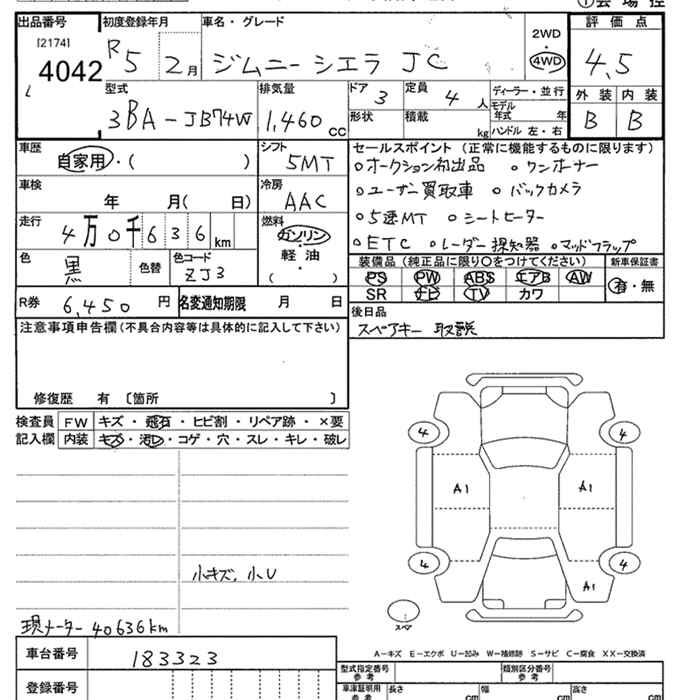 ①会場控
出品番号 初度登録年月 車名・グレード 評価点
[2174] 4042 R5 2月 ジムニーシエラ JC 2WD 4WD 4.5
型式 排気量 ドア 定員 ディーラー・並行 外装 内装
3BA-JB74W 1,460cc 3 4人 モデル年式 年 B B
形状 積載 kg ハンドル 左・右
車歴 自家用・( ) シフト 5MT セールスポイント(正常に機能するものに限ります)
○オークション初出品 ○ワンオーナー
車検 年 月( 日) 冷房 AAC ○ユーザー買取車 ○バックカメラ
走行 4万0千636km 燃料 ガソリン ○5速MT ○シートヒーター
軽油 ( ) ○ETC ○レーダー探知器 ○マッドフラップ
色 黒 色替 色コード ZJ3 装備品(純正品に限り○をつけてください) 新車保証書
PS PW ABS エアB AW 有・無
SR ナビ TV カワ
R券 6,450円 名変通知期限 月 日 後日品
スペアキー 取説
注意事項申告欄(不具合内容等は具体的に記入して下さい)
修復歴 有 〔箇所 〕
検査員 FW キズ・飛石・ヒビ割・リペア跡・×要
記入欄 内装 キズ・汚レ・コゲ・穴・スレ・キレ・破レ
4 4
A1 A1
4 4
A1
小キズ、小U
スペア
現メーター 40636km
A-キズ E-エクボ U-凹み W-補修跡 S-サビ C-腐食 XX-交換済
車台番号 183323
型式指定番号 参考 類別区分番号 参考
登録番号 車庫証明用 参考 長さ cm 幅 cm 高さ cm